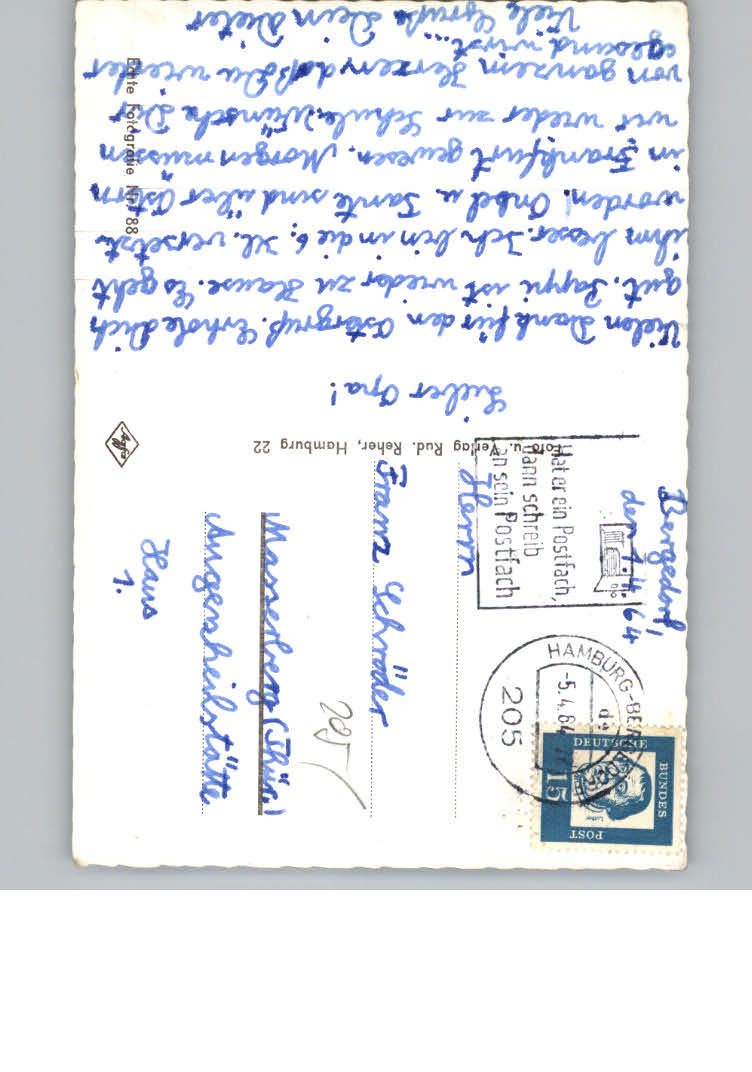 Bergedorf,
den 1.4.64
Lieber Opa!
Vielen Dank für den Ostergruß. Erhole Dich
gut. Pappi ist wieder zu Hause. Es geht
ihm besser. Ich bin in die 6. Kl. versetzt
worden. Onkel u. Tante sind über Ostern
in Frankfurt gewesen. Morgen müssen
wir wieder zur Schule. Wünsche Dir
von ganzem Herzen, daß Du wieder
gesund wirst...
Viele Grüße Dein Dieter
Echte Fotografie Nr. 88
Foto u. Verlag Rud. Reher, Hamburg 22
Agfa
Hat er ein Postfach,
dann schreib
an sein Postfach
HAMBURG-BERGEDORF
-5.4.64
205
DEUTSCHE
BUNDES
POST
15
Luther
Herrn
Franz Schröder
205
(Thür.)
Lungenheilstätte
Haus
1.